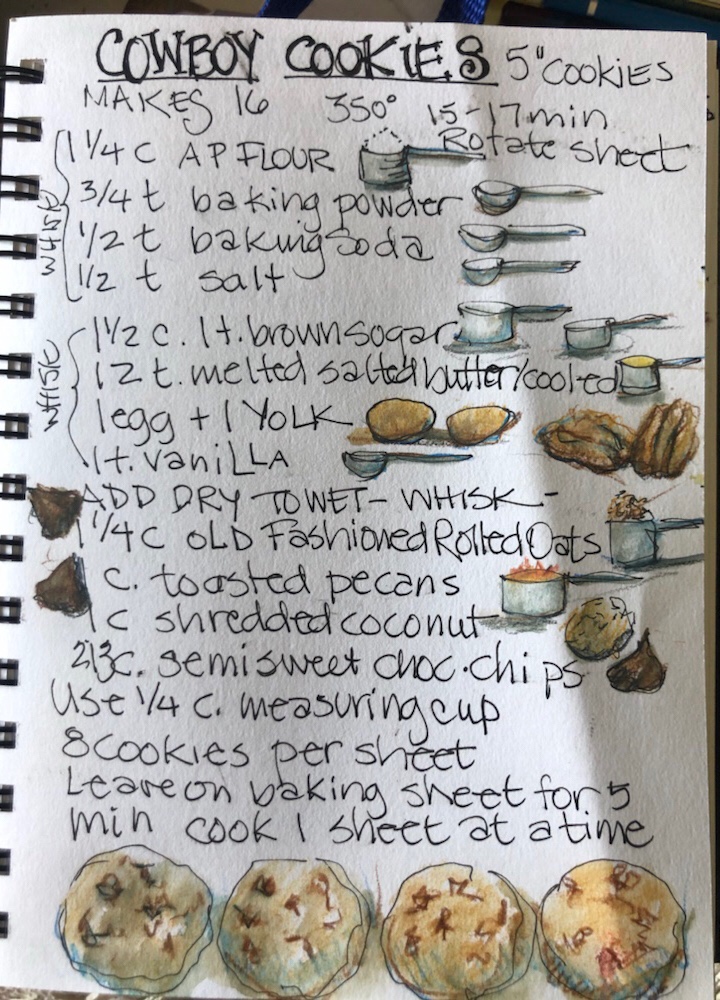 COWBOY COOKIES 5" COOKIES
MAKES 16 350° 15-17 min
Rotate sheet
WHISK
1 1/4 C AP FLOUR
3/4 t baking powder
1/2 t baking soda
1/2 t salt
WHISK
1 1/2 c. lt. brown sugar
12 t. melted salted butter/cooled
1 egg + 1 YOLK
1 t. vaniLLA
ADD DRY TO WET - WHISK -
1 1/4 C OLD Fashioned Rolled Oats
c. toasted pecans
1 c shredded coconut
2/3 c. semi sweet choc. chips
Use 1/4 c. measuring cup
8 cookies per sheet
Leave on baking sheet for 5
min cook 1 sheet at a time